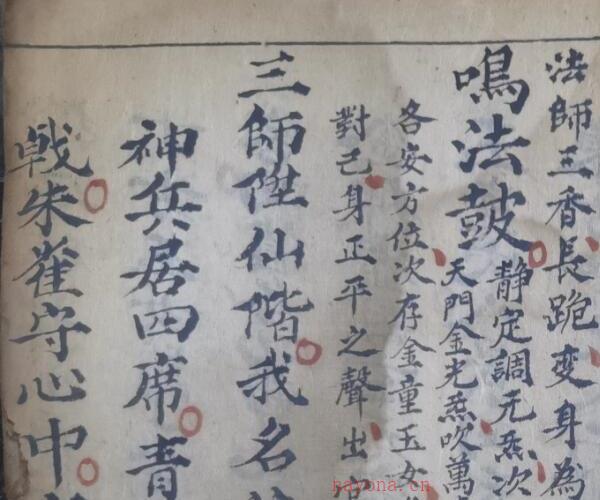 法師三香長跪变身為
鳴法皷
静定調元炁次
天門金光炁吹萬
各安方位次存金童玉女
對己身正平之聲出
三師陞仙階我名
神兵居四席青
戟朱雀守心中
nayona.cn